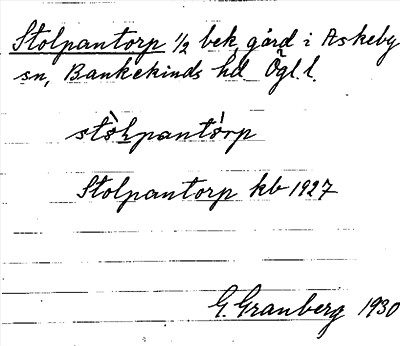 Stolpantorp 1/2 bek. gård i Askeby
sn, Bankekinds hd Ögl. l.
stòlpantórp
Stolpantorp kb 1927
G. Granberg 1930